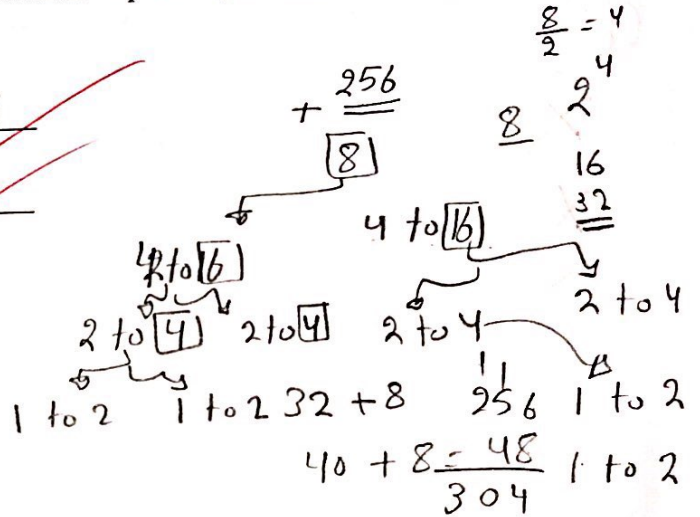 8/2 = 4
2^4
+ 256
8
8
16
32
4 to 16
4 to 16
2 to 4
2 to 4
2 to 4
2 to 4
1 to 2
1 to 2
32 + 8
256
1 to 2
40 + 8 = 48
304
1 to 2